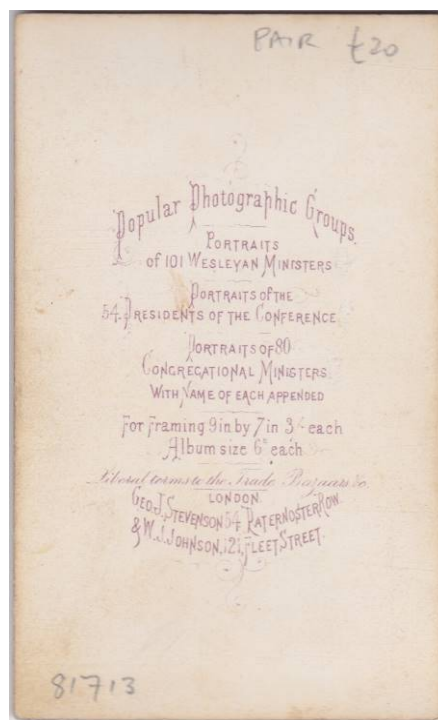 PAIR £20
Popular Photographic Groups.
PORTRAITS
of 101 WESLEYAN MINISTERS
PORTRAITS OF THE
54 PRESIDENTS OF THE CONFERENCE
PORTRAITS OF 80
CONGREGATIONAL MINISTERS
WITH NAME OF EACH APPENDED
For Framing 9 in by 7 in 3/- each
Album size 6d each
Liberal terms to the Trade Bazaars &c.
LONDON.
GEO. J. STEVENSON 54 PATERNOSTER ROW
& W. J. JOHNSON, 121, FLEET STREET.
81713